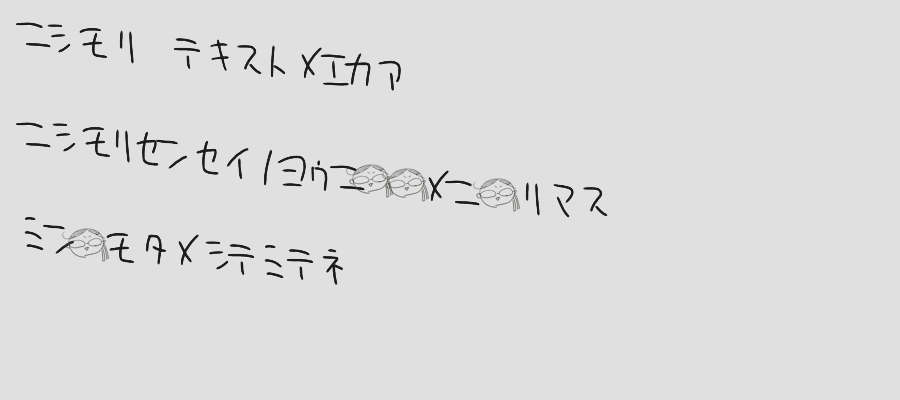 ニシモリ テキストメエカア
ニシモリセンセイノヨウニメニリマス
ミンモタメシテミテネ